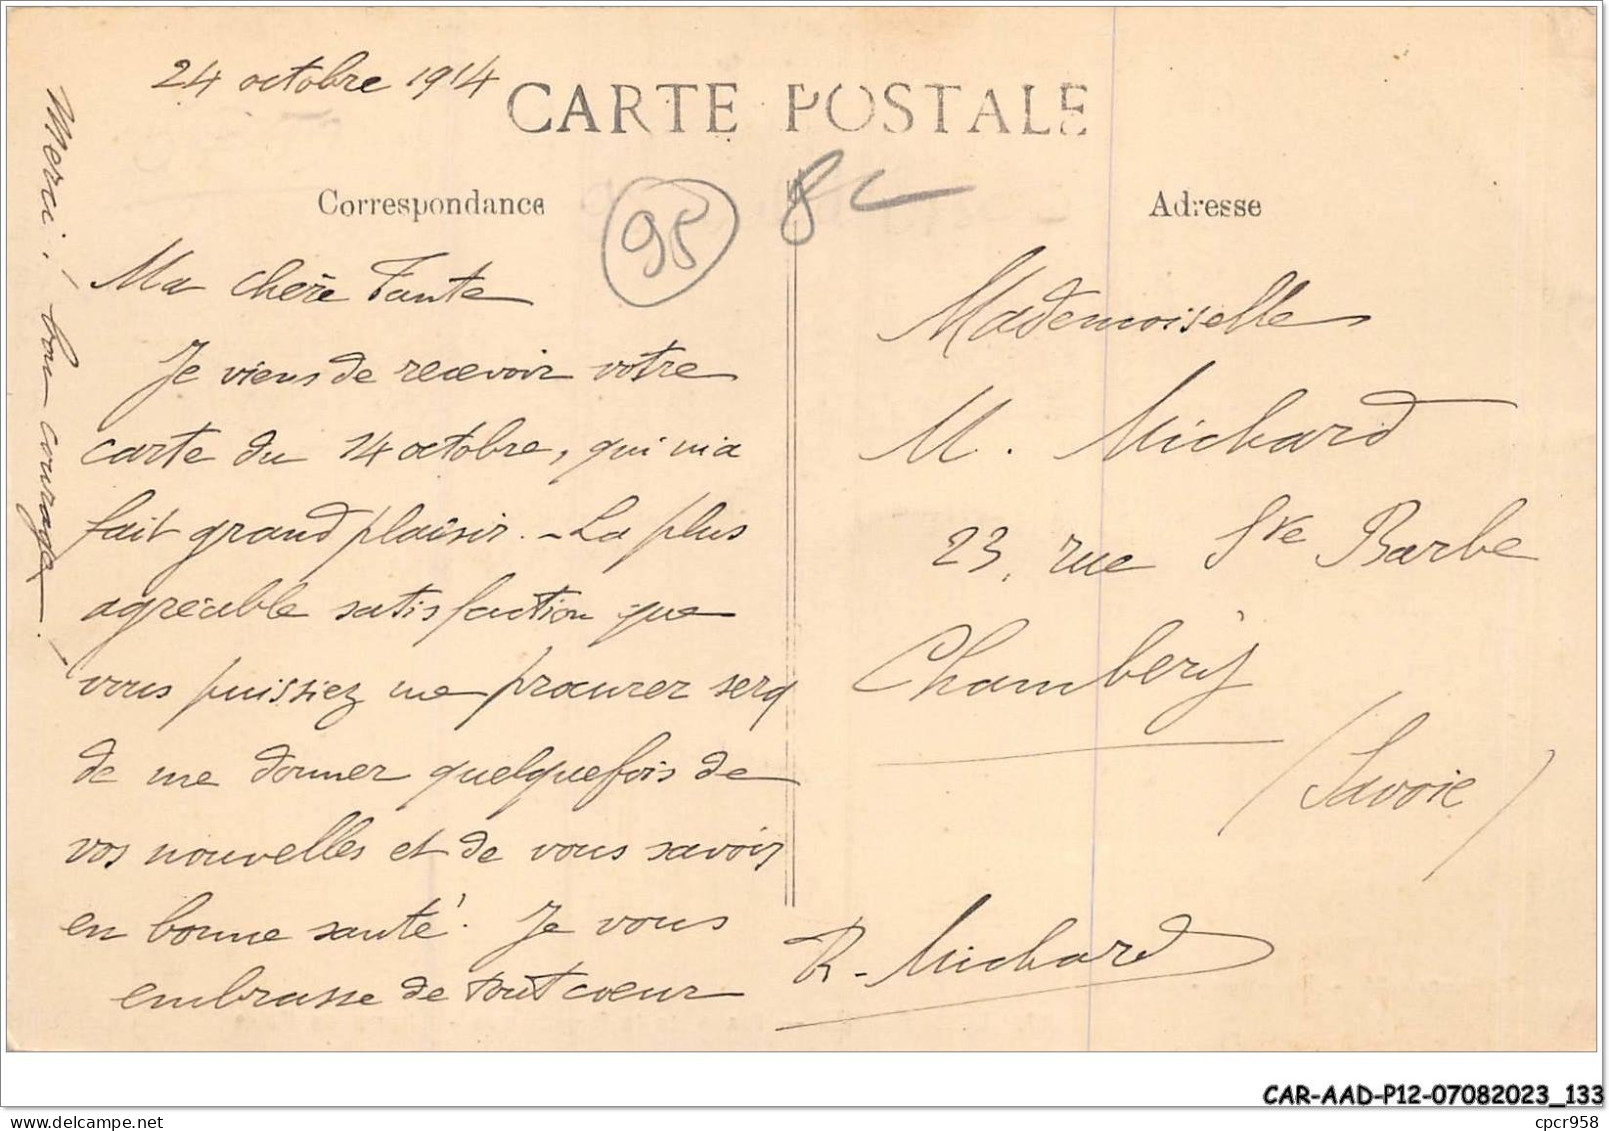 24 octobre 1914
CARTE POSTALE
Correspondance
95
8c
Adresse
Ma chère Tante
Je viens de recevoir votre
carte du 14 octobre, qui m'a
fait grand plaisir. - La plus
agréable satisfaction que
vous puissiez me procurer sera
de me donner quelquefois de
vos nouvelles et de vous savoir
en bonne santé. Je vous
embrasse de tout coeur
R. Michard
Merci ! bon courage !
Mademoiselle
M. Michard
23, rue Ste Barbe
Chambéry
(Savoie)
CAR-AAD-P12-07082023_133
cpcr958